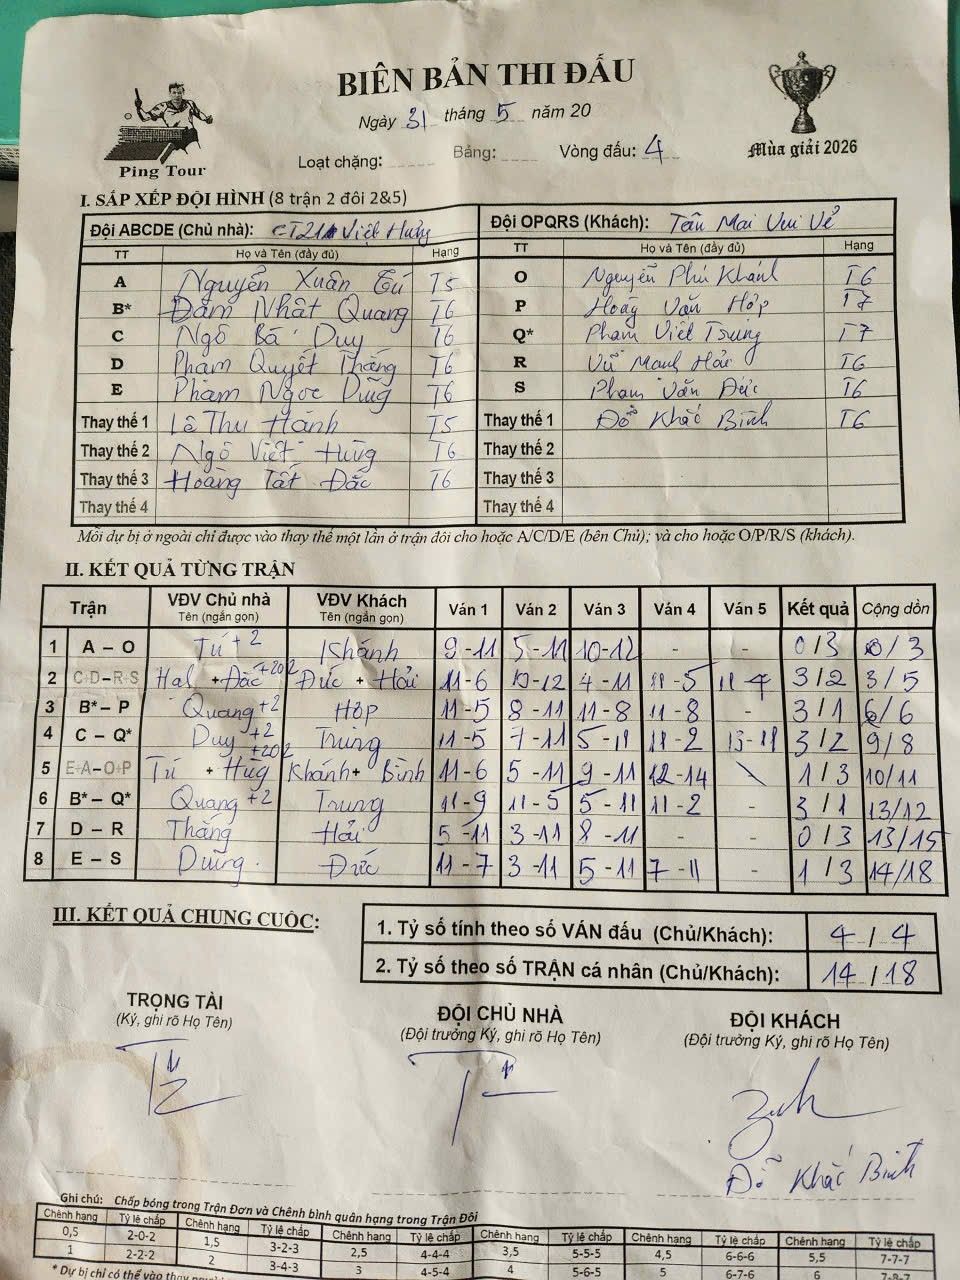 BIÊN BẢN THI ĐẤU
Ngày 31 tháng 5 năm 20
Ping Tour
Loạt chặng: Bảng: Vòng đấu: 4
Mùa giải 2026
I. SẮP XẾP ĐỘI HÌNH (8 trận 2 đôi 2&5)
Đội ABCDE (Chủ nhà): CT21A Việt Hưng Đội OPQRS (Khách): Tân Mai Vui Vẻ
TT Họ và Tên (đầy đủ) Hạng TT Họ và Tên (đầy đủ) Hạng
A Nguyễn Xuân Tú T5 O Nguyễn Phú Khánh T6
B* Đàm Nhật Quang T6 P Hoàng Văn Hợp T7
C Ngô Bá Duy T6 Q* Phạm Việt Trung T7
D Phạm Quyết Thắng T6 R Vũ Mạnh Hải T6
E Phạm Ngọc Dũng T6 S Phạm Văn Đức T6
Thay thế 1 Lê Thu Hánh T5 Thay thế 1 Đỗ Khắc Bình T6
Thay thế 2 Ngô Việt Hùng T6 Thay thế 2
Thay thế 3 Hoàng Tất Đắc T6 Thay thế 3
Thay thế 4 Thay thế 4
Mỗi dự bị ở ngoài chỉ được vào thay thế một lần ở trận đôi cho hoặc A/C/D/E (bên Chủ); và cho hoặc O/P/R/S (khách).
II. KẾT QUẢ TỪNG TRẬN
Trận VĐV Chủ nhà Tên (ngắn gọn) VĐV Khách Tên (ngắn gọn) Ván 1 Ván 2 Ván 3 Ván 4 Ván 5 Kết quả Cộng dồn
1 A – O Tú +2 Khánh 9-11 5-11 10-12 - - 0/3 0/3
2 C+D–R+S +Đắc +202 Đức + Hải 11-6 10-12 4-11 11-5 11-4 3/2 3/5
3 B*– P Quang +2 Hợp 11-5 8-11 11-8 11-8 - 3/1 6/6
4 C – Q* Duy +2 Trung 11-5 7-11 5-11 11-2 13-11 3/2 9/8
5 E+A–O+P Tú + Hùg +202 Khánh+ Bình 11-6 5-11 9-11 12-14 \ 1/3 10/11
6 B*– Q* Quang +2 Trung 11-9 11-5 5-11 11-2 - 3/1 13/12
7 D – R Thắng Hải 5-11 3-11 8-11 - - 0/3 13/15
8 E – S Dũng Đức 11-7 3-11 5-11 7-11 - 1/3 14/18
III. KẾT QUẢ CHUNG CUỘC:
1. Tỷ số tính theo số VÁN đấu (Chủ/Khách): 4/4
2. Tỷ số theo số TRẬN cá nhân (Chủ/Khách): 14/18
TRỌNG TÀI ĐỘI CHỦ NHÀ ĐỘI KHÁCH
(Ký, ghi rõ Họ Tên) (Đội trưởng Ký, ghi rõ Họ Tên) (Đội trưởng Ký, ghi rõ Họ Tên)
Đỗ Khắc Bình
Ghi chú: Chấp bóng trong Trận Đơn và Chênh bình quân hạng trong Trận Đôi
Chênh hạng Tỷ lệ chấp Chênh hạng Tỷ lệ chấp Chênh hạng Tỷ lệ chấp Chênh hạng Tỷ lệ chấp Chênh hạng Tỷ lệ chấp Chênh hạng Tỷ lệ chấp
0,5 2-0-2 1,5 3-2-3 2,5 4-4-4 3,5 5-5-5 4,5 6-6-6 5,5 7-7-7
1 2-2-2 2 3-4-3 3 4-5-4 4 5-6-5 5 6-7-6 6 7-8-7
* Dự bị chỉ có thể vào thay